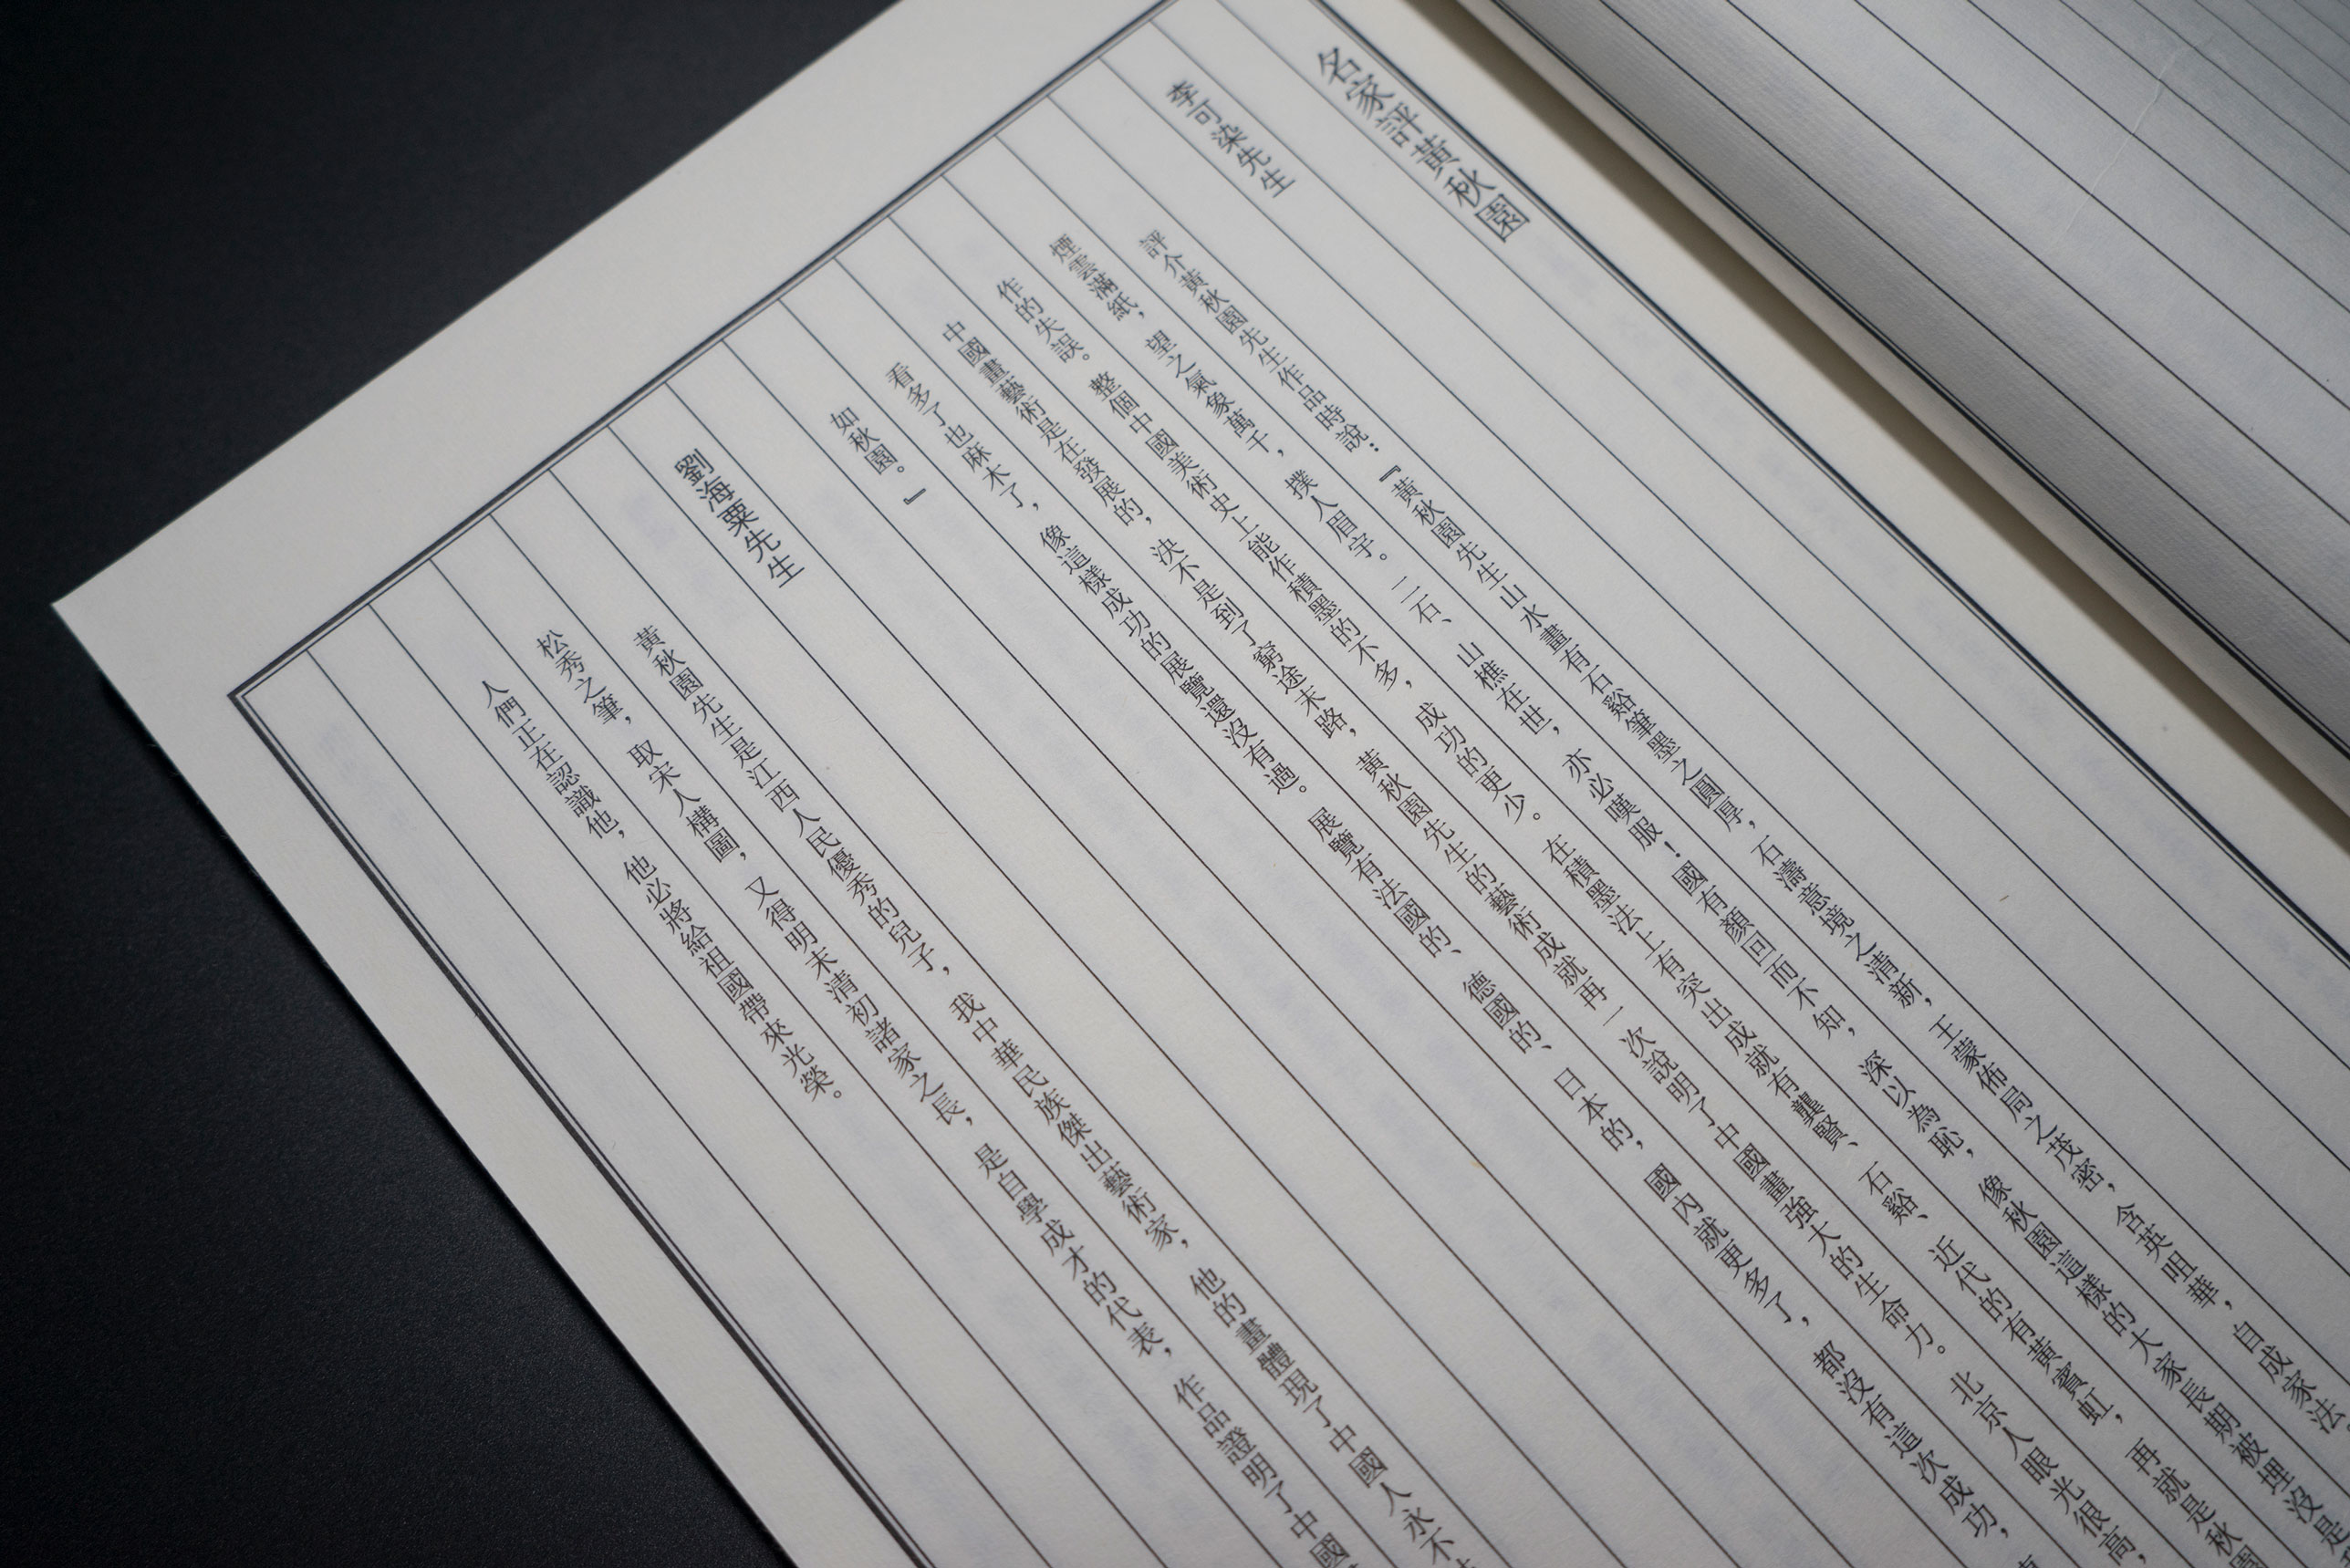 名家評黃秋園
李可染先生
評介黃秋園先生作品時說：『黃秋園先生山水畫有石谿筆墨之圓厚，石濤意境之清新，王蒙佈局之茂密，含英咀華，自成家法，
煙雲滿紙，望之氣象萬千，撲人眉宇。二石、山樵在世，亦必嘆服！國有顏回而不知，深以為恥，像秋園這樣的大家長期被埋沒是
作的失誤。整個中國美術史上能作積墨的不多，成功的更少。在積墨法上有突出成就有龔賢、石谿、近代的有黃賓虹，再就是秋園
中國畫藝術是在發展的，決不是到了窮途末路，黃秋園先生的藝術成就再一次說明了中國畫強大的生命力。北京人眼光很高，
看多了也麻木了，像這樣成功的展覽還沒有過。展覽有法國的、德國的、日本的，國內就更多了，都沒有這次成功，
如秋園。』
劉海粟先生
黃秋園先生是江西人民優秀的兒子，我中華民族傑出藝術家，他的畫體現了中國人永不
松秀之筆，取宋人構圖，又得明末清初諸家之長，是自學成才的代表，作品證明了中國
人們正在認識他，他必將給祖國帶來光榮。